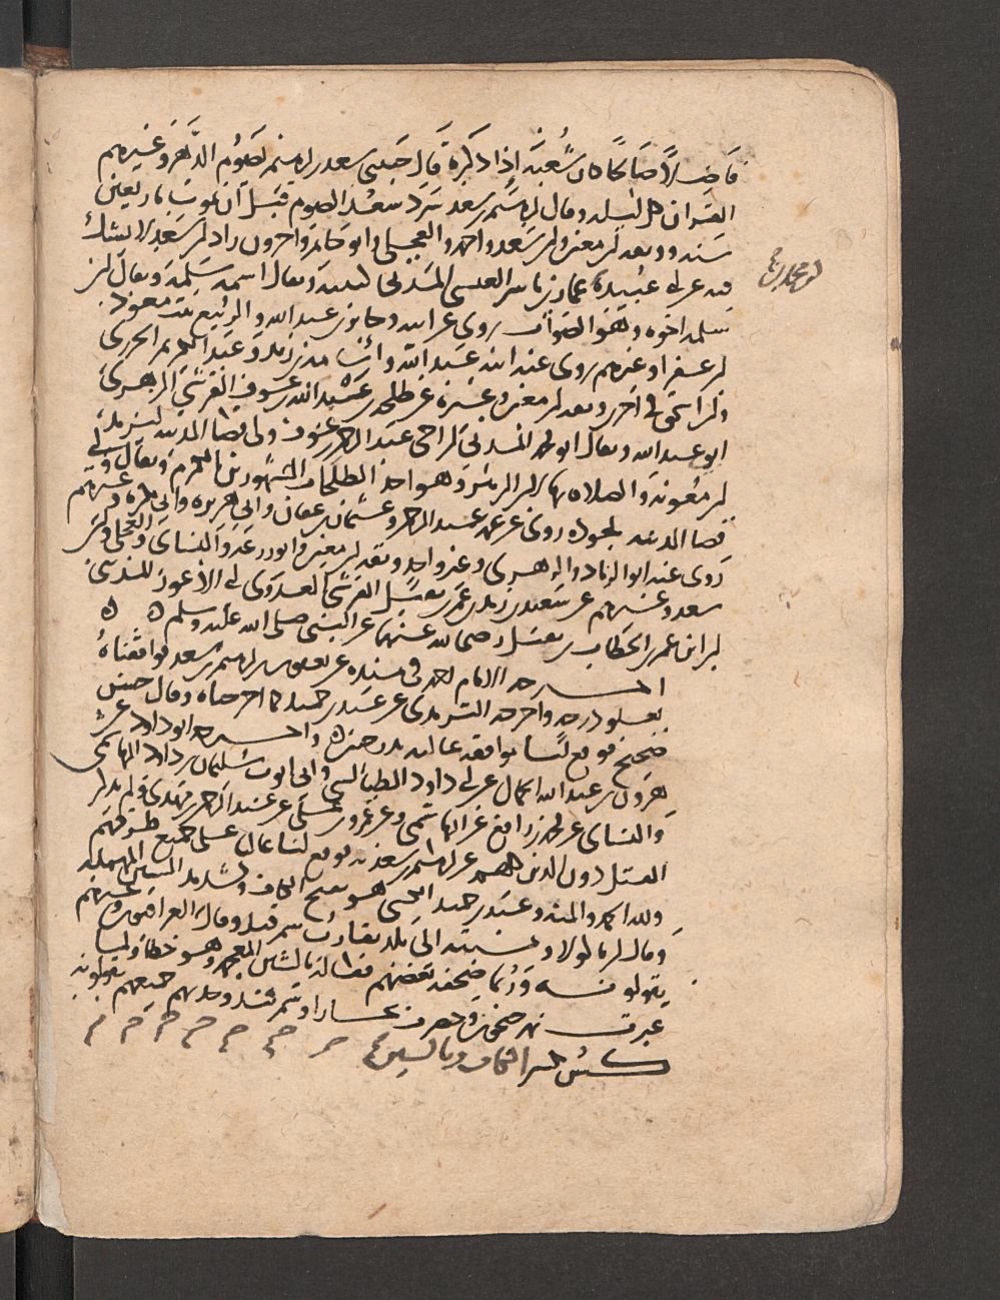 فاضلا صالحا كان شعبة إذا ذكره قال حبيبي سعد بن ابرهيم يصوم الدهر ويختم
القران كل ليلة وقال ابرهيم بن سعد سرد سعد الصوم قبل أن يموت بأربعين
سنة ووثقه ابن معين وابن سعد واحمد والعجلي وابو حاتم واخرون زاد ابن سعد لا يشك
فيه عن ابي عبيدة بن محمد بن عمار بن ياسر العنسي المدني ويقال اسمه سلمة ويقال ان
سلمة اخوه وهو الصواب روى عن ابيه وجابر بن عبد الله والربيع بنت معوذ
ابن عفرا وغيرهم روى عنه ابنه عبد الله واسامة بن زيد وعبد الكريم الجزري
وابن اسحق في اخرين وثقه ابن معين وغيره عن طلحة بن عبد الله بن عوف القرشي الزهري
ابو عبد الله ويقال ابو محمد المدني ابن اخي عبد الرحمن بن عوف ولي قضا المدينة ليزيد
ابن معوية والصلاة بها لابن الزبير وهو احد الطلحات المشهورين بالكرم ويقال ولي
قضا المدينة روى عن عمه عبد الرحمن وعثمان بن عفان وابي هريرة وغيرهم
روى عنه ابو الزناد والزهري وغير واحد وثقه ابن معين وابو زرعة والنساي والعجلي وابن
سعد وغيرهم عن سعيد بن زيد بن عمرو بن نفيل القرشي العدوي ابي الاعور المدني
ابن ابن عم عمر بن الخطاب بن نفيل رضي الله عنهما عن النبي صلى الله عليه وسلم ه ه
اخرجه الامام احمد في مسنده عن يعقوب بن ابرهيم بن سعد فوافقناه
بعلو درجة واخرجه الترمذي عن عبد بن حميد كما اخرجناه وقال حسن
صحيح فوقع لنا موافقة عالية بدرجتين ه واخرجه ابو داود عن
هرون بن عبد الله الحمال عن ابي داود الطيالسي وابي ايوب سليمان بن داود الهاشمي
والنساي عن محمد بن رافع عن الهاشمي وعن عمرو بن علي عن عبد الرحمن بن مهدي ولم يذكر
القتل دون الدين كلهم عن ابرهيم بن سعد به فوقع لنا عال على جميع طرقهم
ولله الحمد والمنة وعبد بن حميد الكسي هو بفتح الكاف وتشديد السين المهملة
وقال ابن ماكولا ونسبته الى بلد تقارب سمرقند وقال العراقيون وغيرهم
يقولونه وربما صحفه بعضهم فقاله بالشين المعجمة وهو خطأ ولما
عبرت نهر جيحون وحضرت بخارا وسمرقند وجدتهم جميعهم يقولونه
كس بكسر الكاف وبالسين